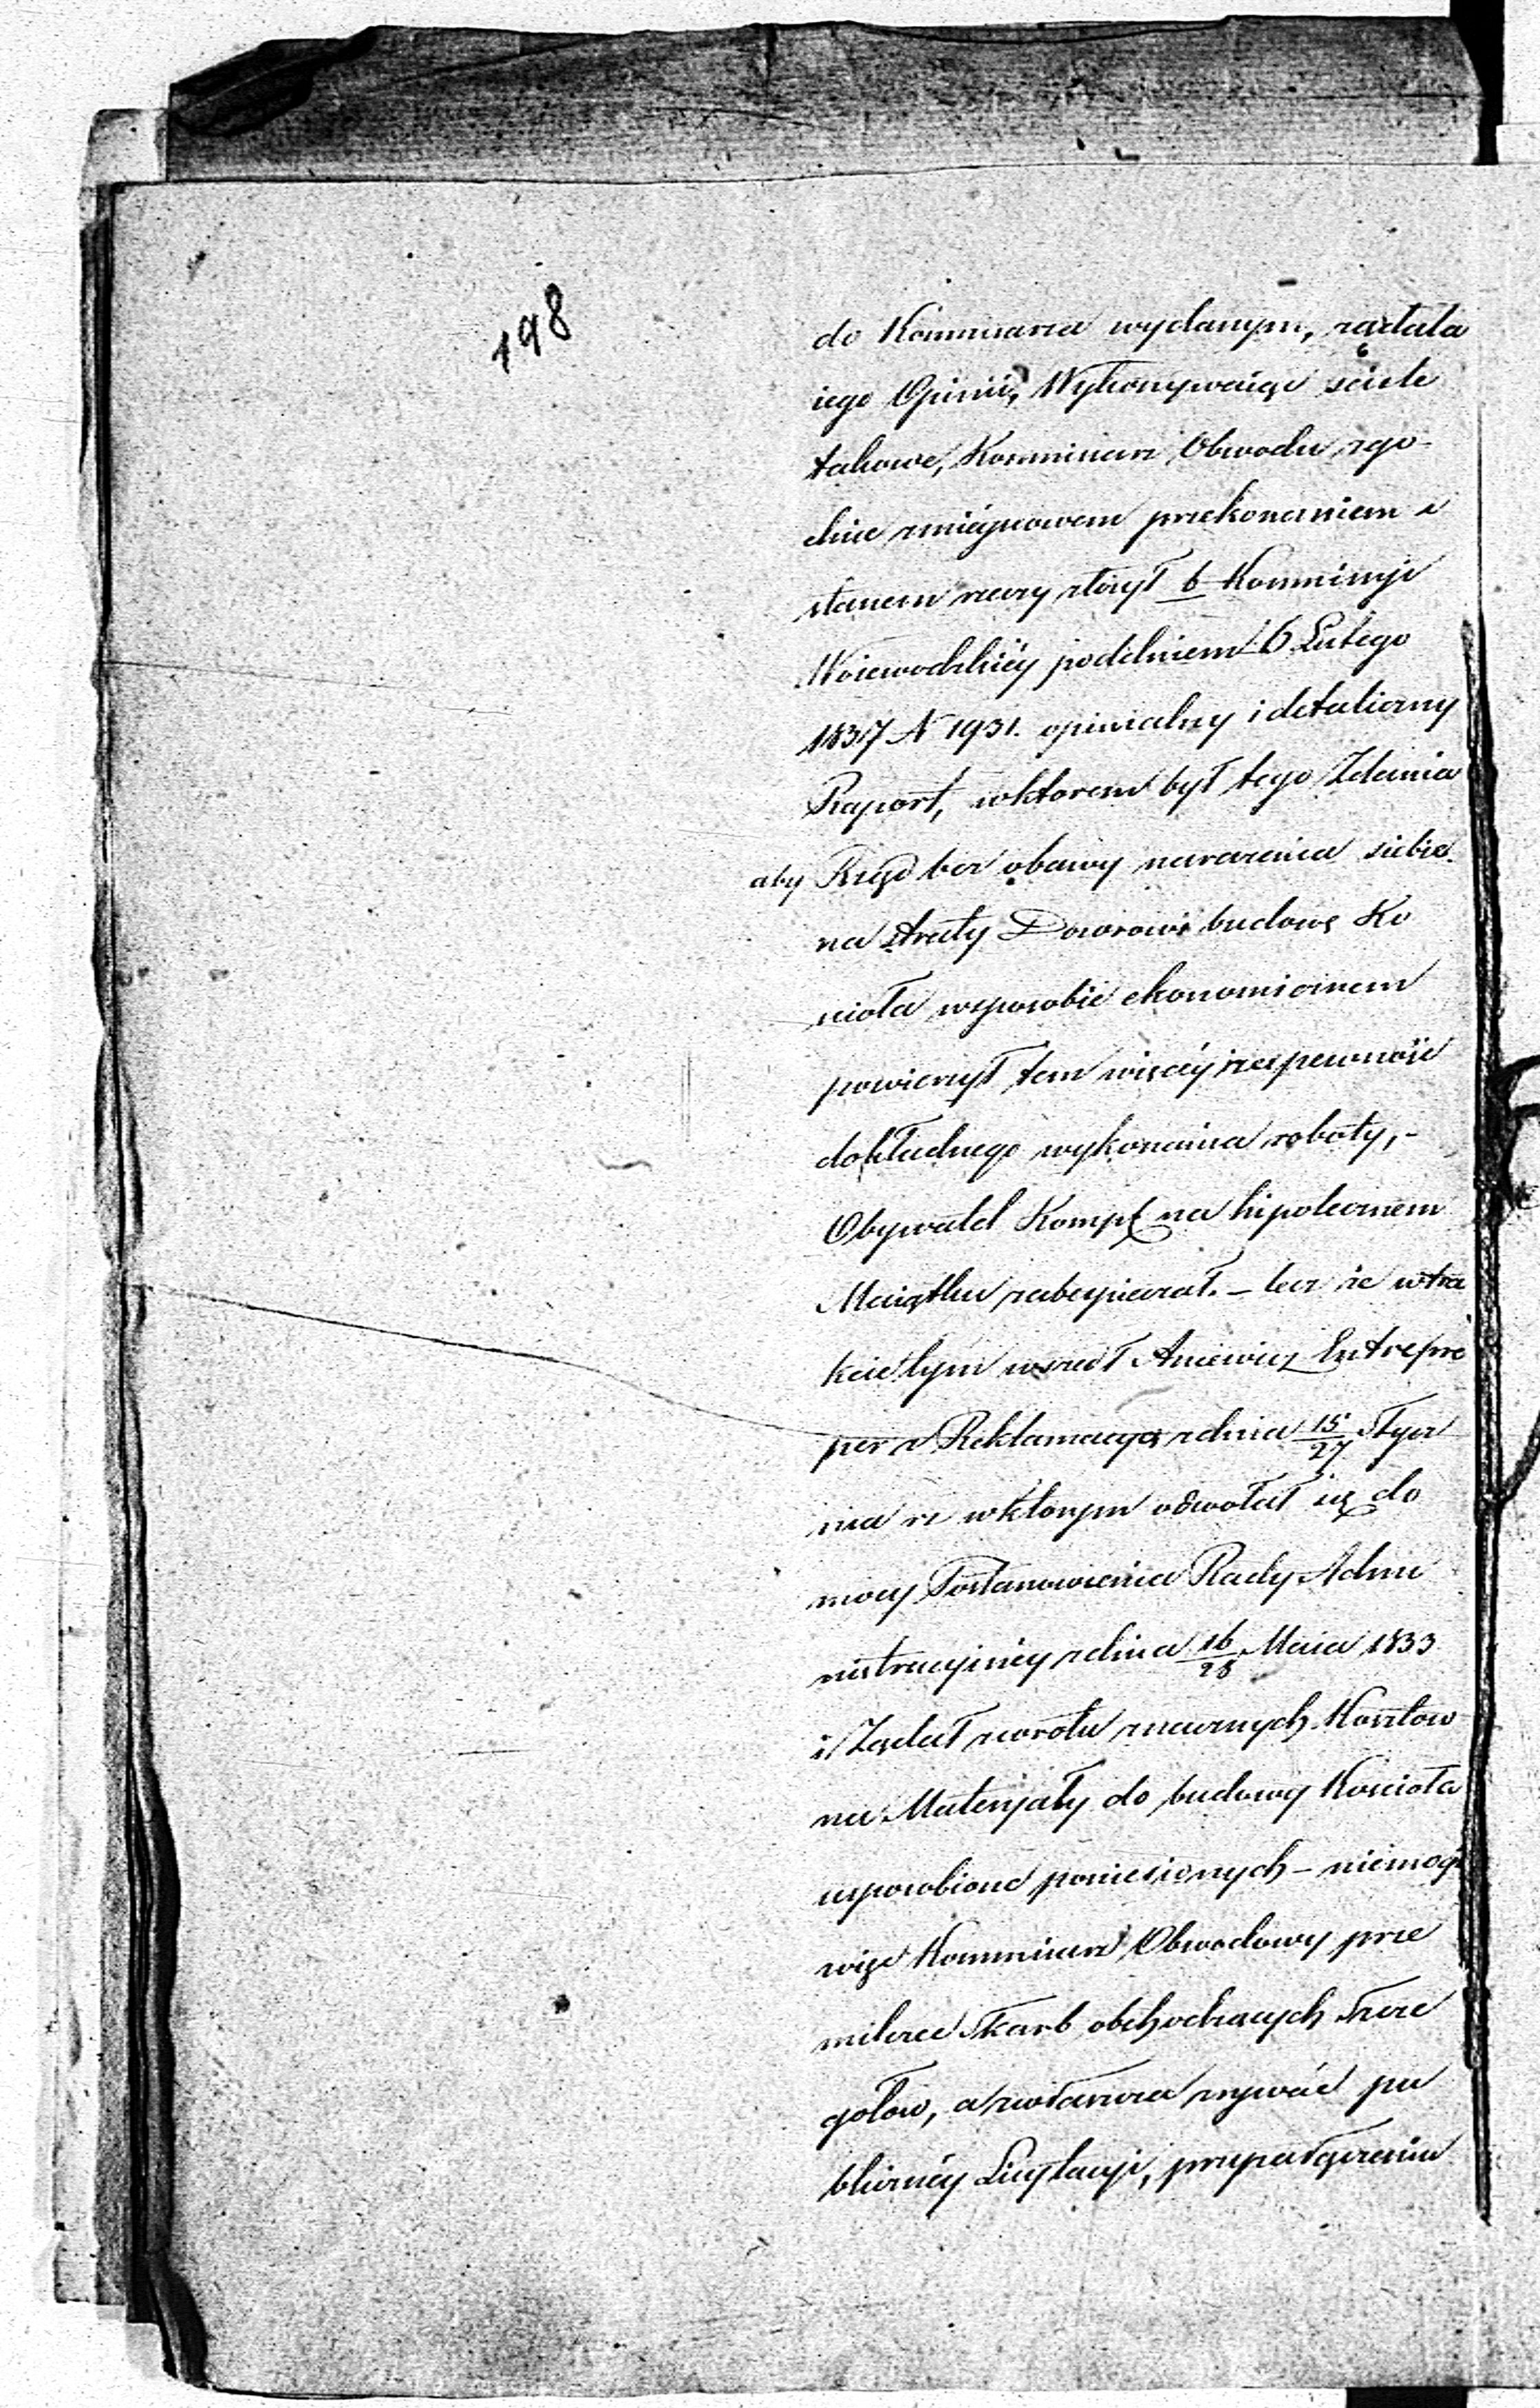 198
do Kommisarza wydanym, rządała
iego Opinii, Wykonywaiąc sciśle
takowe, Kommisarz Obwodu zgo-
dnie zmieyscowem przekonaniem i
stanem rzeczy złożył b Kommissyi
Woiewodzkiéy poddniem 6 Lutego
1837 N 1931. opinialny i detaliczny
Raport, wktorem był tego Zdania
aby Rząd bez obawy narażenia siebie
na straty Dozorowi budowę Ko
scioła wsposobie ekonomicznem
powierzył tem więcéy że pewność
dokładnego wykonania roboty, -
Obywatel Kompf na hipotecznem
Maiątku zabezpieczał. - lecz że wtra
kcie tym wszedł Aniewicz Entrepre
ner z Reklamacyą zdnia 15/27 Stycz
nia rz wktorym odwołał się do
mocy Postanowienia Rady Admi
nistracyinéy zdnia 16/28 Maia 1833
i Żądał zwrotu znacznych Kosztow
na Materyały do budowy Koscioła
usposobione poniesionych - niemogąc
więc Kommisarz Obwodowy prze
milczeć Skarb obchodzących Szcze
gołow, a zwłaszcza wzywać pu
bliczney Licytacyi, przyparłączeniu